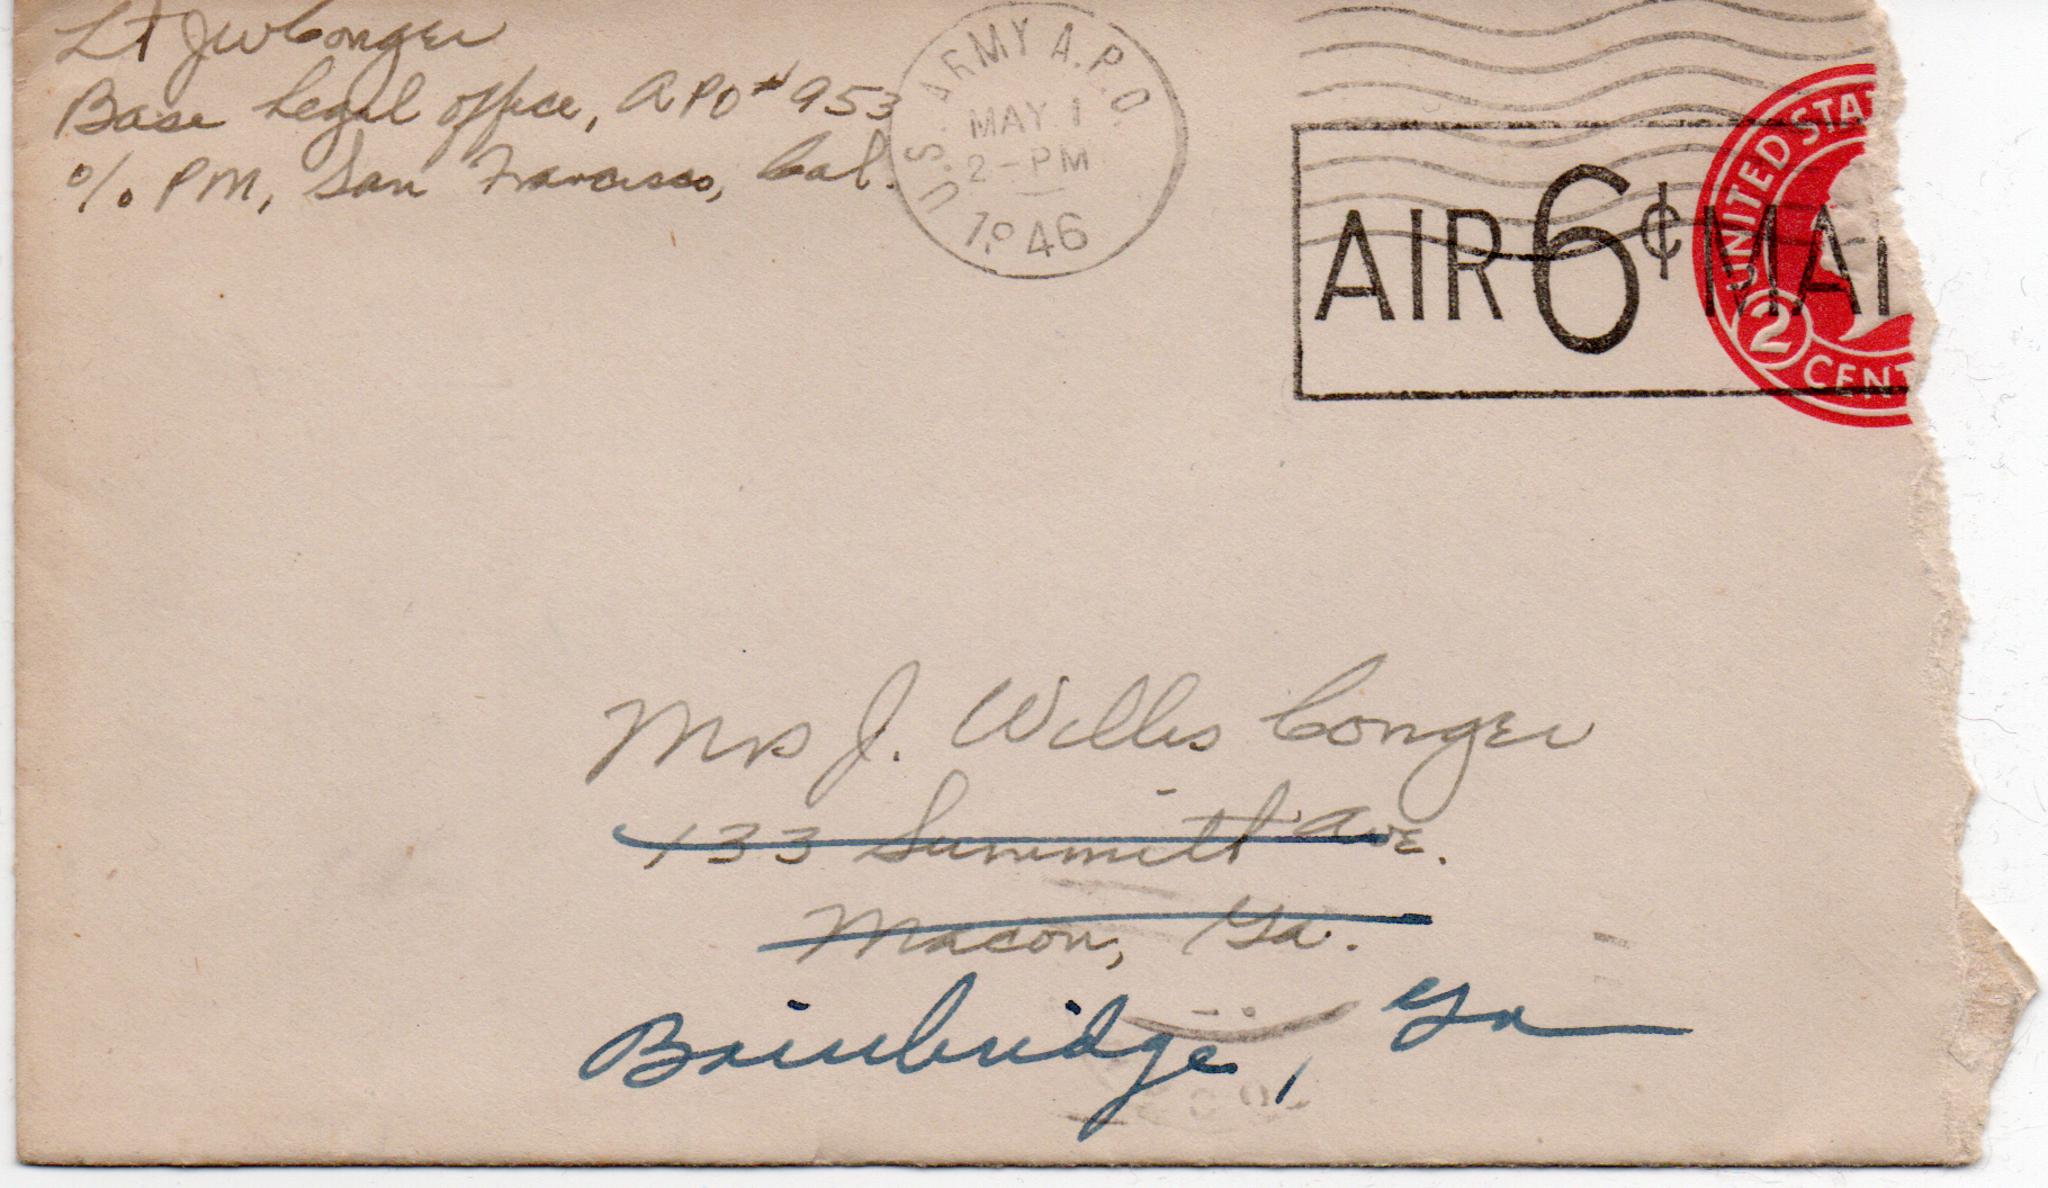 Lt JW Conger
Base Legal Office, APO #953
c/o PM, San Francisco, Cal.
U.S. ARMY A.P.O.
MAY 1
2-PM
1946
AIR 6¢ MAI
UNITED STA
2
CENT
Mrs J. Willis Conger
133 Summitt Ave.
Macon, Ga.
Bainbridge, Ga